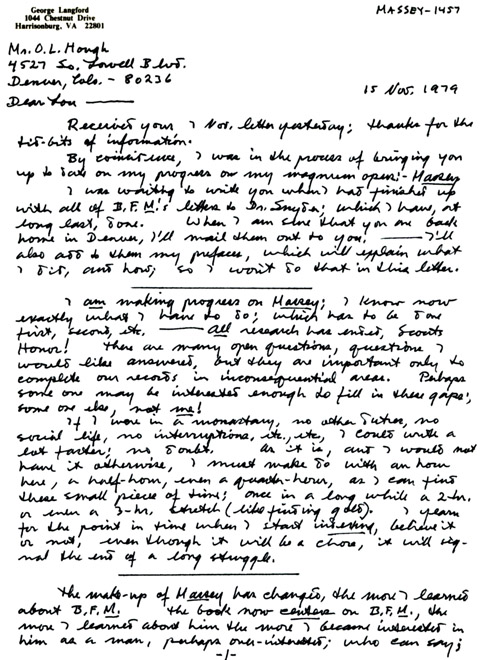 George Langford
1044 Chestnut Drive
Harrisonburg, VA 22801
MASSEY-1457
Mr. O.L. Hough
4527 So. Lowell Blvd.
Denver, Colo. - 80236
15 Nov. 1979
Dear Lou ——
Received your 7 Nov. letter yesterday; thanks for the
tid-bits of information.
By coincidence, I was in the process of bringing you
up to date on my progress on my magnum opus:- Massey
I was waiting to write you when I had finished up
with all of B.F.M.'s letters to Dr. Snyder; which I have, at
long last, done. When I am sure that you are back
home in Denver, I'll mail them out to you! —— I'll
also add to them my preface, which will explain what
I did, and how; so I won't do that in this letter.
I am making progress on Massey; I know now
exactly what I have to do; which has to be done
first, second, etc. —— All research has ended, Scouts
Honor! There are many open questions, questions I
would like answered, but they are important only to
complete our records in inconsequential areas. Perhaps
some one may be interested enough to fill in these gaps;
some one else, not me!
If I were in a monastary, no other duties, no
social life, no interruptions, etc., etc, I could write a
lot faster; no doubt. As it is, and I would not
have it otherwise, I must make do with an hour
here, a half-hour, even a quarter-hour, as I can find
these small pieces of time; once in a long while a 2-hr.
or even a 3-hr. stretch (like finding gold). I yearn
for the point in time when I start indexing, believe it
or not; even though it will be a chore, it will sig-
nal the end of a long struggle.
The make-up of Massey has changed, the more I learned
about B.F.M. The book now centers on B.F.M., the
more I learned about him the more I became interested in
him as a man, perhaps over-interested; who can say;
-1-